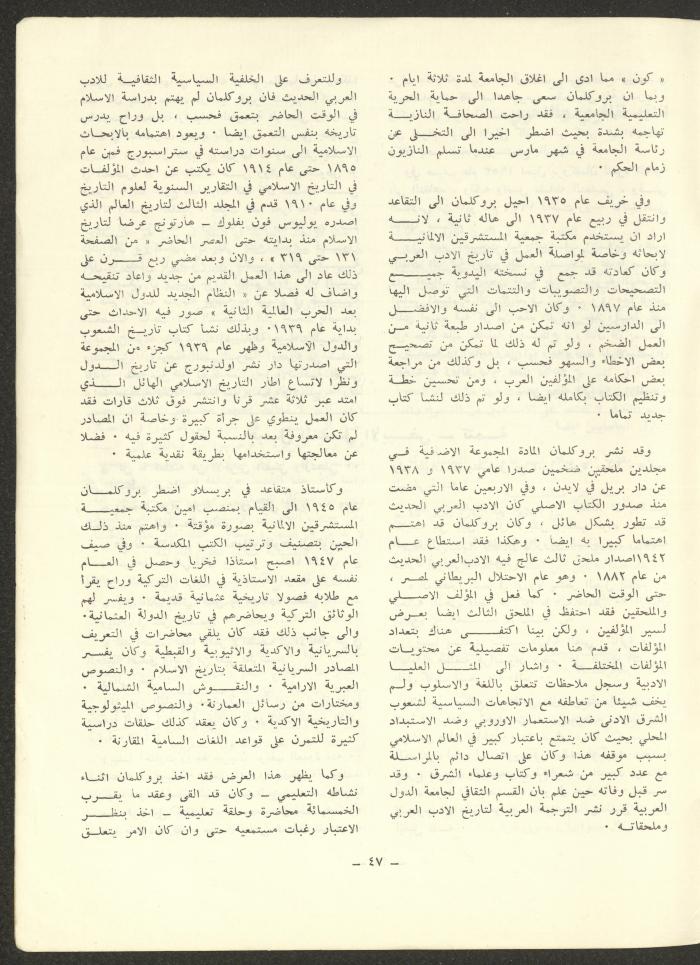 « كون » مما ادى الى اغلاق الجامعة لمدة ثلاثة ايام ·
وبما ان بروكلمان سعى جاهدا الى حماية الحرية
التعليمية الجامعية ، فقد راحت الصحافة النازيـة
تهاجمه بشدة بحيث اضطر اخيرا الى التخـلى عن
رئاسة الجامعة في شهر مارس عندما تسلم النازيون
زمام الحكم ·
وفي خريف عام ١٩٣٥ احيل بروكلمان الى التقاعد
وانتقل في ربيع عام ١٩٣٧ الى هاله ثانية ، لانــه
اراد ان يستخدم مكتبة جمعية المستشرقين الالمانيــة
لابحاثه وخاصة لمواصلة العمل في تاريخ الادب العربـي
وكان كعادته قد جمع في نسخته اليدوية جميــع
التصحيحات والتصويبات والتتمات التي توصل اليها
منذ عام ١٨٩٧ · وكان الاحب الى نفسه والافضــل
الى الدارسين لو انه تمكن من اصدار طبعة ثانية مـن
العمل الضخم ، ولو تم له ذلك لما تمكن من تصحيـح
بعض الاخطاء والسهو فحسب ، بل وكذلك من مراجعة
بعض احكامه على المؤلفين العرب ، ومن تحسين خطـة
وتنظيم الكتاب بكامله ايضا ، ولو تم ذلك لنشا كتاب
جديد تماما ·
وقد نشر بروكلمان المادة المجموعة الاضافية فـي
مجلدين ملحقين ضخمين صدرا عامي ١٩٣٧ و ١٩٣٨
عن دار بريل في لايدن ، وفي الاربعين عاما التي مضت
منذ صدور الكتاب الاصلي كان الادب العربي الحديث
قد تطور بشكل هائل ، وكان بروكلمان قد اهتـم
اهتماما كبيرا به ايضا · وهكذا فقد استطاع عــام
١٩٤٢اصدار ملحق ثالث عالج فيه الادب‌العربي الحديث
من عام ١٨٨٢ · وهو عام الاحتلال البريطاني لمصر ،
حتى الوقت الحاضر · كما فعل في المؤلف الاصــلي
والملحقين فقد احتفظ في الملحق الثالث ايضا بعـرض
لسير المؤلفين ، ولكن بينا اكتفــى هناك بتعداد
المؤلفات ، قدم هنا معلومات تفصيلية عن محتويـات
المؤلفات المختلفـة · واشار الى المثــل العليـا
الادبية وسجل ملاحظات تتعلق باللغة والاسلوب ولـم
يخف شيئا من تعاطفه مع الاتجاهات السياسية لشعوب
الشرق الادنى ضد الاستعمار الاوروبي وضد الاستبداد
المحلي بحيث كان يتمتع باعتبار كبير في العالم الاسلامي
بسبب موقفه هذا وكان على اتصال دائم بالمراسـلة
مع عدد كبير من شعراء وكتاب وعلماء الشرق · وقد
سر قبل وفاته حين علم بان القسم الثقافي لجامعة الدول
العربية قرر نشر الترجمة العربية لتاريخ الادب العربي
وملحقاتـه ·
وللتعرف على الخلفية السياسية الثقافيـة للادب
العربي الحديث فان بروكلمان لم يهتم بدراسة الاسلام
في الوقت الحاضر بتعمق فحسب ، بل وراح يدرس
تاريخه بنفس التعمق ايضا · ويعود اهتمامه بالابحاث
الاسلامية الى سنوات دراسته في ستراسبورج فمن عام
١٨٩٥ حتى عام ١٩١٤ كان يكتب عن احدث المؤلفـات
في التاريخ الاسلامي في التقارير السنوية لعلوم التاريخ
وفي عام ١٩١٠ قدم في المجلد الثالث لتاريخ العالم الذي
اصدره يوليوس فون بفلوك ــ هارتونج عرضا لتاريخ
الاسلام منذ بدايته حتى العصر الحاضر « من الصفحة
١٣١ حتى ٣١٩ » ، والان وبعد مضي ربع قــرن على
ذلك عاد الى هذا العمل القديم من جديد واعاد تنقيحـه
واضاف له فصلا عن « النظام الجديد للدول الاسلامية
بعد الحرب العالمية الثانية » صور فيه الاحداث حتى
بداية عام ١٩٣٩· وبذلك نشأ كتاب تاريـخ الشعوب
والدول الاسلامية وظهر عام ١٩٣٩ كجزء من المجموعة
التي اصدرتها دار نشر اولدنبورج عن تاريخ الــدول
ونظرا لاتساع اطار التاريخ الاسلامي الهائل الــذي
امتد عبر ثلاثة عشر قرنا وانتشر فوق ثلاث قارات فقد
كان العمل ينطوي على جرأة كبيرة وخاصة ان المصادر
لم تكن معروفة بعد بالنسبة لحقول كثيرة فيه · فضلا
عن معالجتها واستخدامها بطريقة نقدية علمية ·
وكاستاذ متقاعد في بريسلاو اضطر بروكلمــان
عام ١٩٤٥ الى القيام بمنصب امين مكتبة جمعيــة
المستشرقين الالمانية بصورة مؤقتة · واهتم منذ ذلـك
الحين بتصنيف وترتيب الكتب المكدسة · وفي صيف
عام ١٩٤٧ اصبح استاذا فخريا وحصل في العــام
نفسه على مقعد الاستاذية في اللغات التركية وراح يقرأ
مع طلابه فصولا تاريخية عثمانية قديمة · ويفسر لهم
الوثائق التركية ويحاضرهم في تاريخ الدولة العثمانية·
والى جانب ذلك فقد كان يلقي محاضرات في التعريف
بالسريانية والاكدية والاثيوبية والقبطية وكان يفسـر
المصادر السريانية المتعلقة بتاريخ الاسلام · والنصوص
العبرية الارامية · والنقــوش السامية الشمالية ·
ومختارات من رسائل العمارنة· والنصوص الميثولوجية
والتاريخية الاكدية · وكان يعقد كذلك حلقات دراسية
كثيرة للتمرن على قواعد اللغات السامية المقارنة ·
وكما يظهر هذا العرض فقد اخذ بروكلمان اثنـاء
نشاطه التعليمي ــ وكان قد القى وعقد ما يقــرب
الخمسمائة محاضرة وحلقة تعليمية ــ اخذ بنظــر
الاعتبار رغبات مستمعيه حتى وان كان الامر يتعلـق
ــ ٤٧ ــ